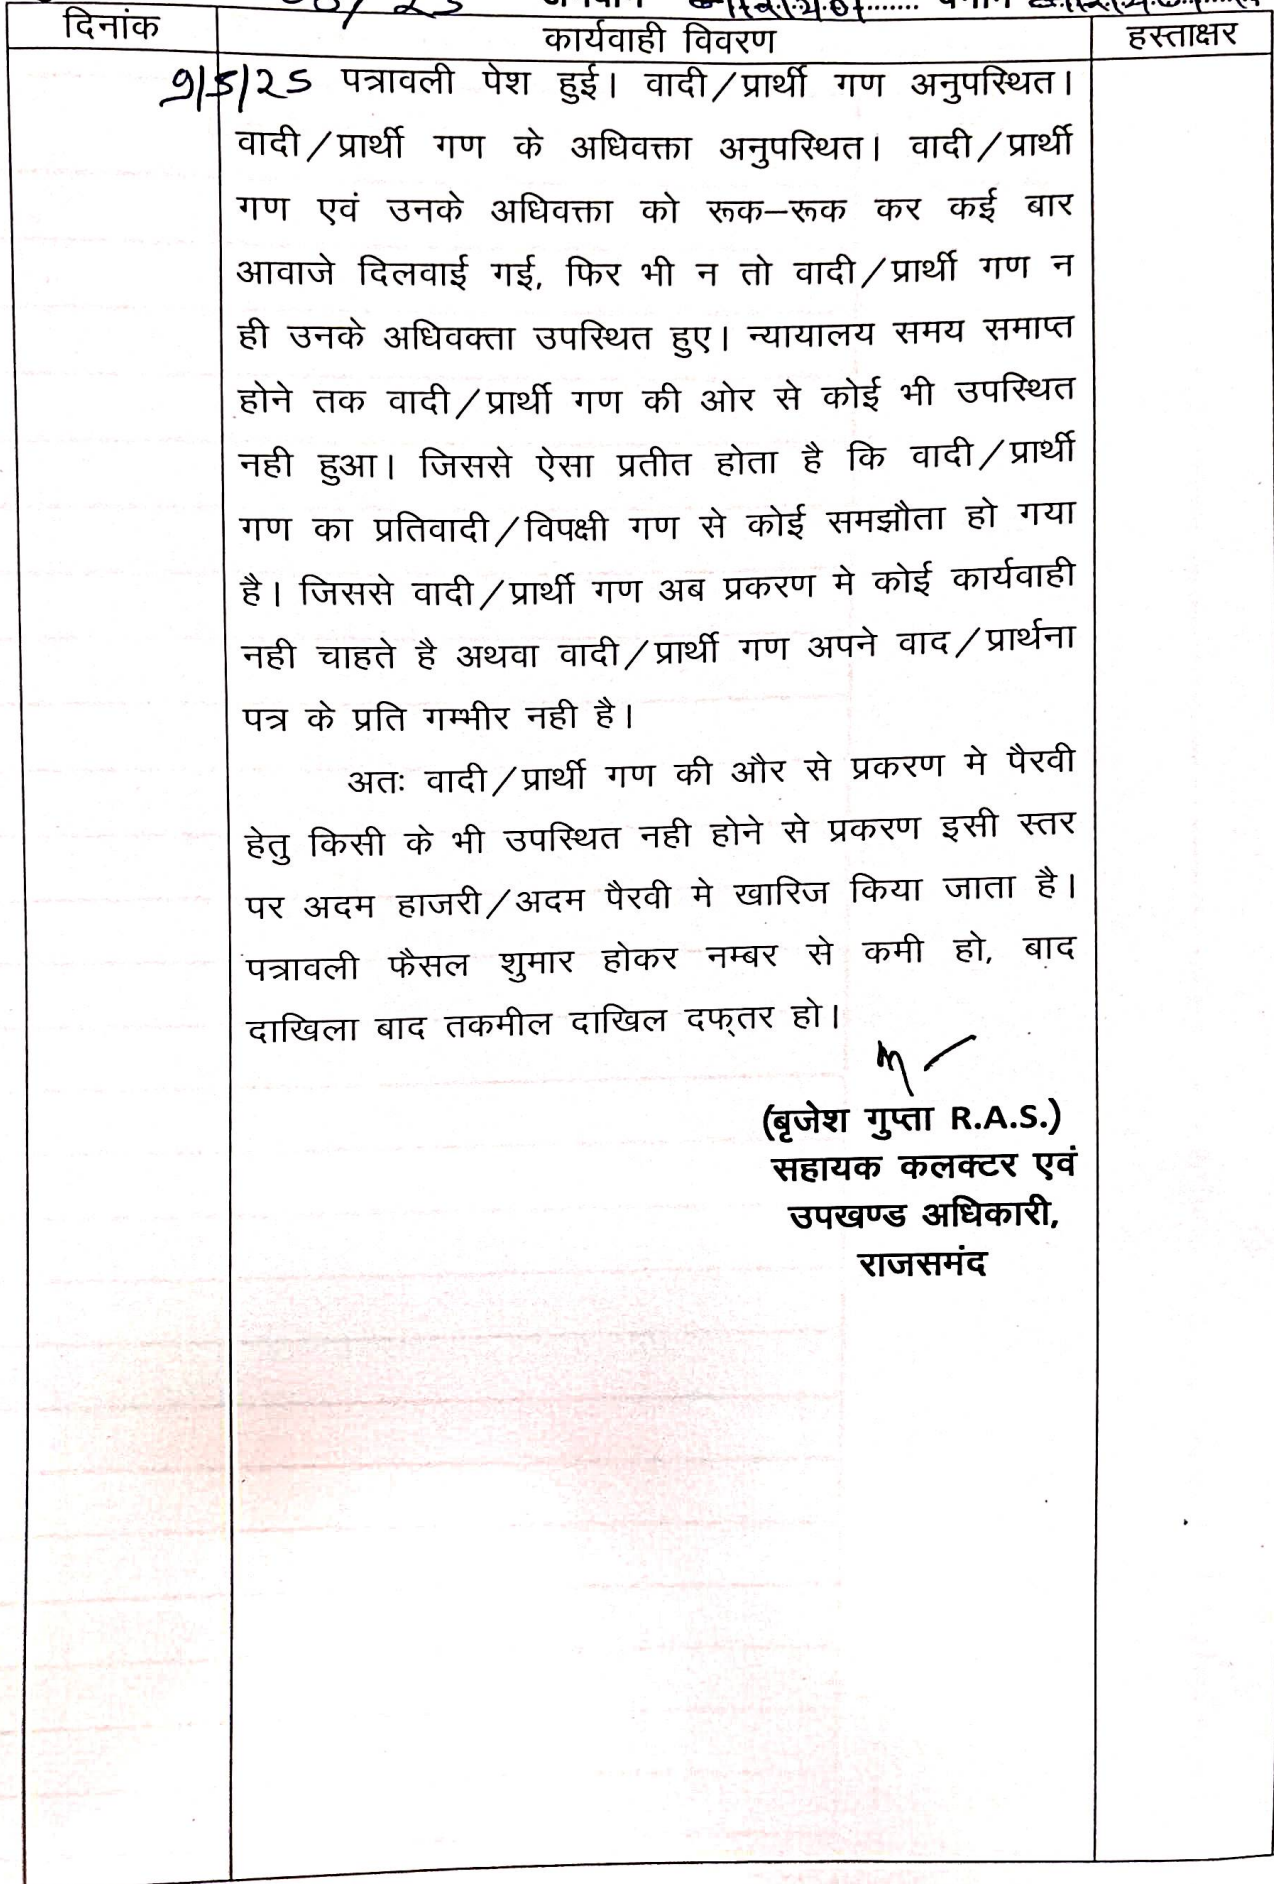 दिनांक
कार्यवाही विवरण
हस्ताक्षर
9/5/25 पत्रावली पेश हुई। वादी/प्रार्थी गण अनुपस्थित।
वादी/प्रार्थी गण के अधिवक्ता अनुपस्थित। वादी/प्रार्थी
गण एवं उनके अधिवक्ता को रूक–रूक कर कई बार
आवाजे दिलवाई गई, फिर भी न तो वादी/प्रार्थी गण न
ही उनके अधिवक्ता उपस्थित हुए। न्यायालय समय समाप्त
होने तक वादी/प्रार्थी गण की ओर से कोई भी उपस्थित
नही हुआ। जिससे ऐसा प्रतीत होता है कि वादी/प्रार्थी
गण का प्रतिवादी/विपक्षी गण से कोई समझौता हो गया
है। जिससे वादी/प्रार्थी गण अब प्रकरण मे कोई कार्यवाही
नही चाहते है अथवा वादी/प्रार्थी गण अपने वाद/प्रार्थना
पत्र के प्रति गम्भीर नही है।
अतः वादी/प्रार्थी गण की और से प्रकरण मे पैरवी
हेतु किसी के भी उपस्थित नही होने से प्रकरण इसी स्तर
पर अदम हाजरी/अदम पैरवी मे खारिज किया जाता है।
पत्रावली फैसल शुमार होकर नम्बर से कमी हो, बाद
दाखिला बाद तकमील दाखिल दफ्तर हो।
(बृजेश गुप्ता R.A.S.)
सहायक कलक्टर एवं
उपखण्ड अधिकारी,
राजसमंद